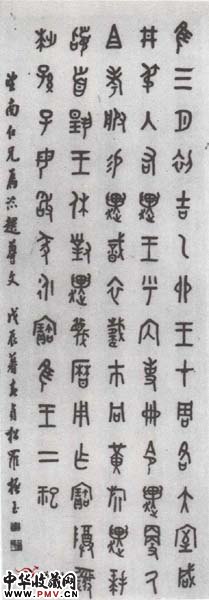 隹三月初吉乙卯王才周各大室咸
井弔入右趩王乎内史册令趩更厥
且考服易趩戠衣載巿冋黃旂趩拜
䭫首揚王休對趩蔑曆用乍寶尊彝
世孫子毋敢墜永寶隹王二祀
南仁兄屬臨趩尊文 戊辰暮春貞松羅振玉
中华收藏网
WWW.PMV.CN